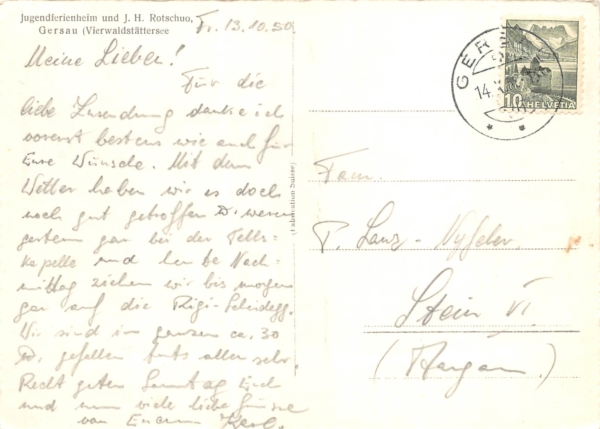 Jugendferienheim und J. H. Rotschuo,
Gersau (Vierwaldstättersee
Fr. 13.10.50
Meine Lieben!
Für die
liebe Zusendung danke ich
vorerst bestens wie auch für
Eure Wünsche. Mit dem
Wetter haben wir es doch
noch gut getroffen
gestern gar bei der Tells-
kapelle und heute Nach-
mittag ziehen wir bis morgen
gar auf die Rigi-Scheidegg.
Wir sind im ganzen ca. 30
gefallen tuts allen sehr.
Recht guten Sonntag Euch
und nun viele liebe Grüsse
von Eurem Karl.
Fam.
P. Lanz-Nyfeler.
Stein
(Aargau.)
GER
14.X
10 HELVETIA